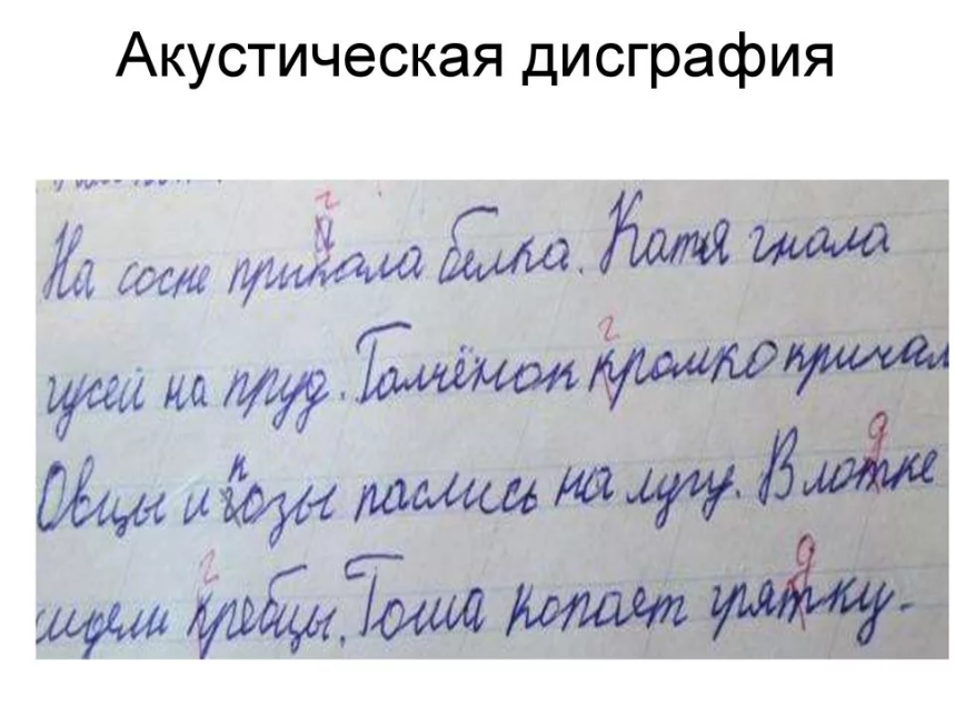 Акустическая дисграфия
На сосне прыкала белка. Катя гнала
гусей на пруд. Галчёнок кромко кричал
Овцы и козы паслись на лугу. В лотке
сидели кребцы. Гоша копает грятку.